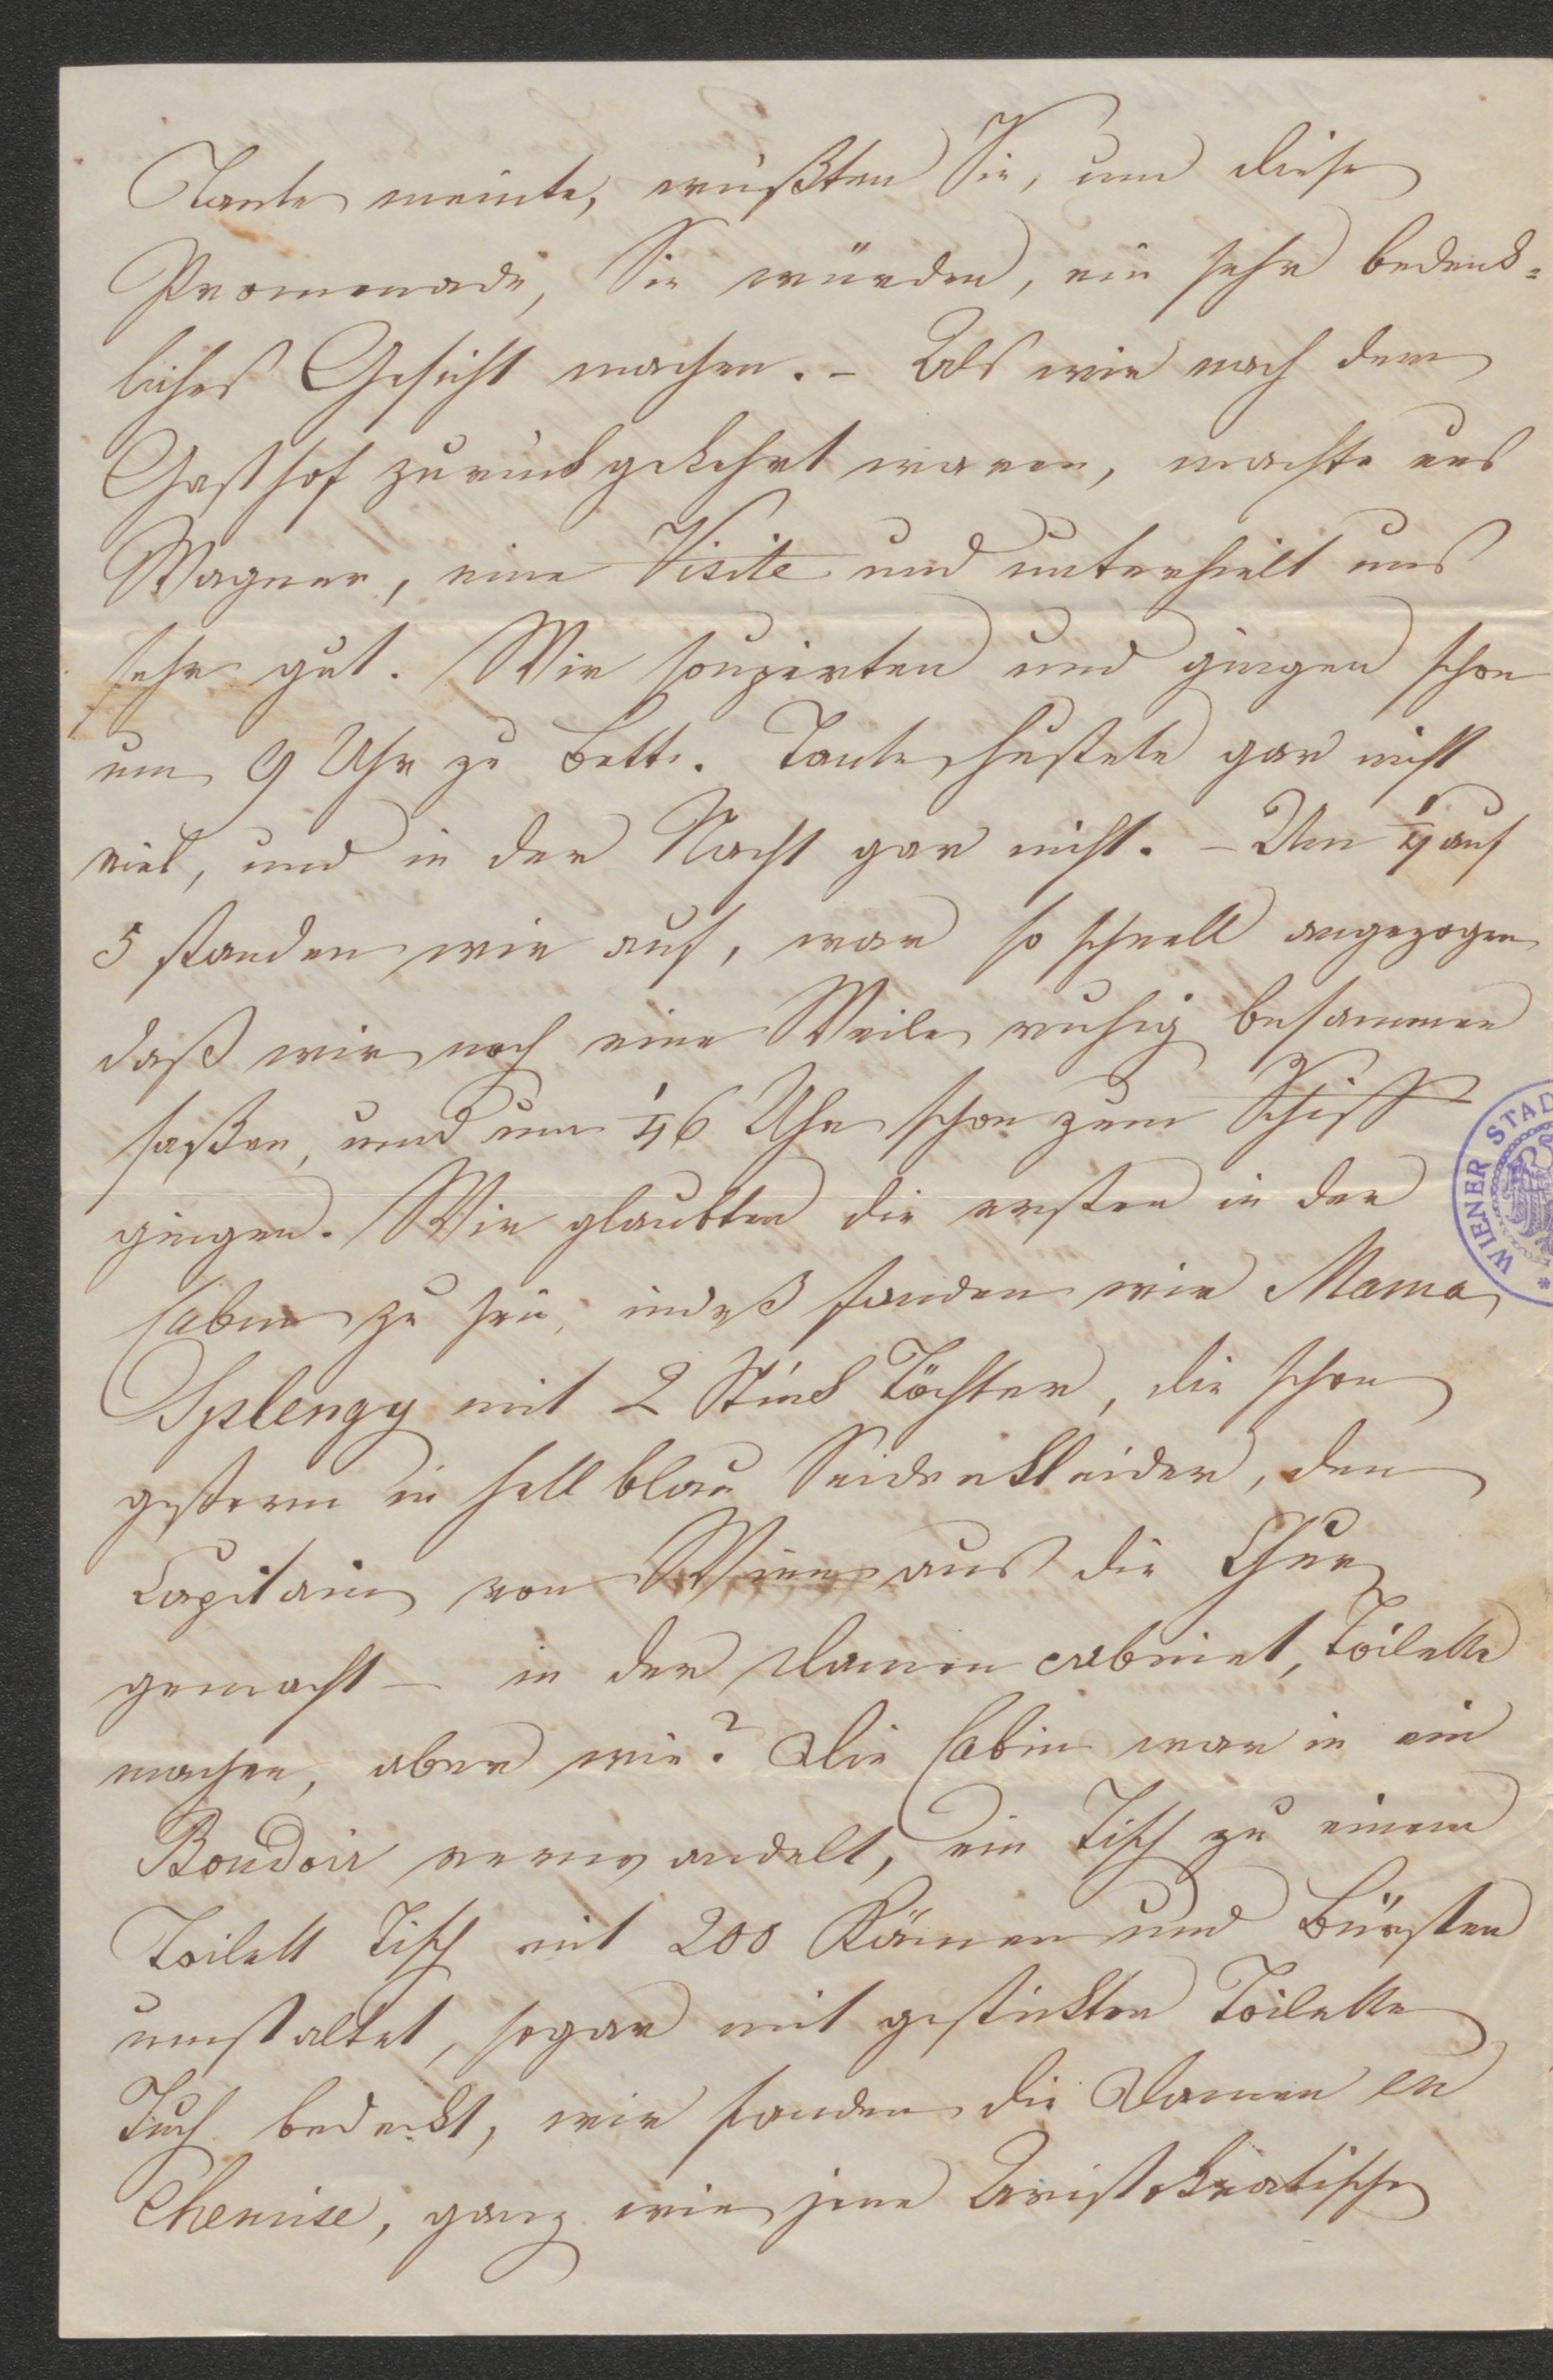 Tante meinte, wüßten Sie, um diese
Promenade, Sie würden, ein sehr bedenk=
liches Gesicht machen. – Als wir nach dem
Gasthof zurückgekehrt waren, machte uns
Wagner, eine Visite und unterhielt uns
sehr gut. Wir soupirten und gingen schon
um 9 Uhr zu Bette. Tante hustete gar nicht
viel, und in der Nacht gar nicht. – Um 1/4 auf
5 standen wir auf, war so schnell angezogen
daß wir noch eine Weile ruhig besammen
saßen, und um 1/4 6 Uhr schon zum Schiff
gingen. Wir glaubten die ersten in der
Cabin zu sein, indeß fanden wir Mama
Splengy mit 2 Stück Töchter, die schon
gestern in hell blau Seidenkleider, den
Capitain von Wien aus die Chur
gemacht – in der Damen cabinet, Toilette
machen, aber wie? Die Cabin war in ein
Boudoir verwandelt, ein Tisch zu einem
Toilett Tisch mit 200 Kämen und Bürsten
umstaltet, sogar mit gestickten Toilette
Tuch bedeckt, wir fanden die Damen en
Chemise, ganz wie jene Aristokratische
WIENER STAD